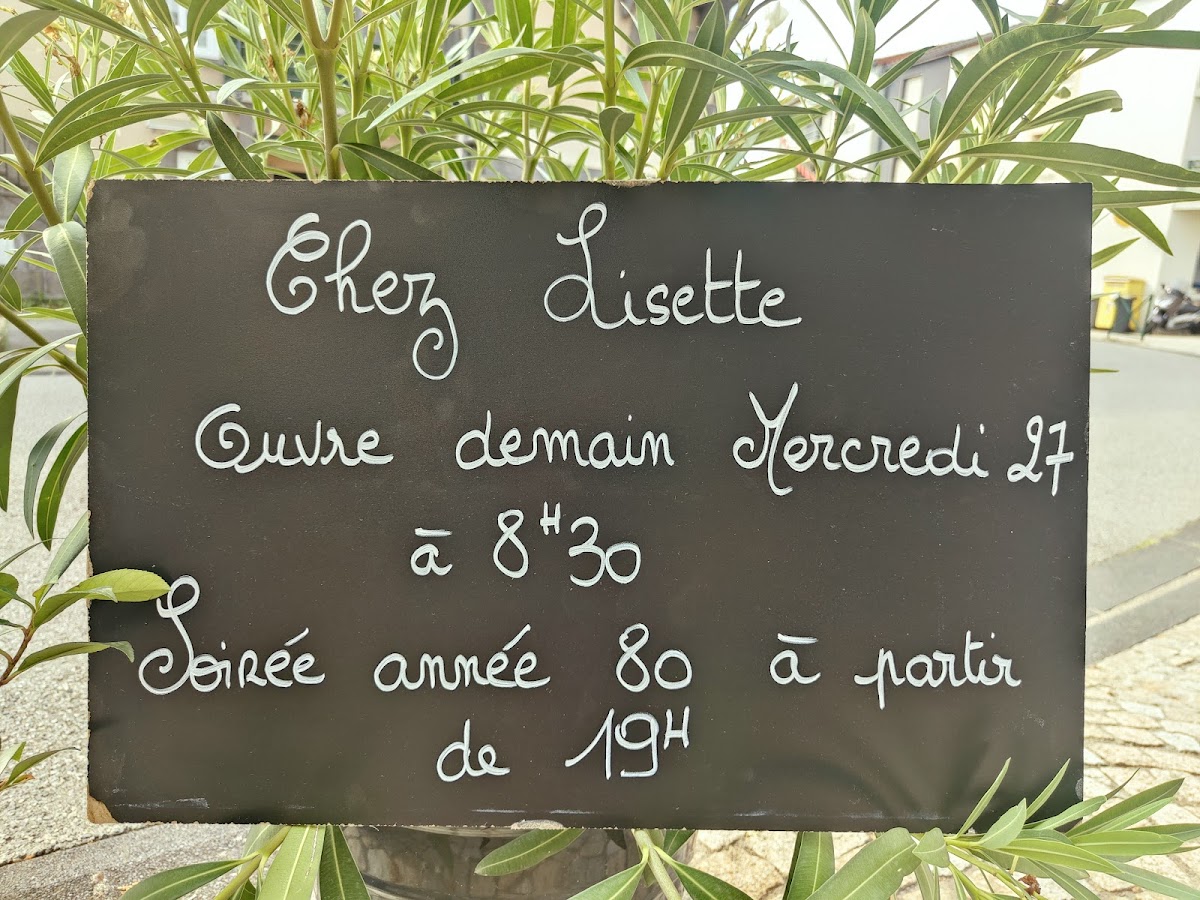 Chez Lisette
Ouvre demain Mercredi 27
à 8H30
Soirée année 80 à partir
de 19H